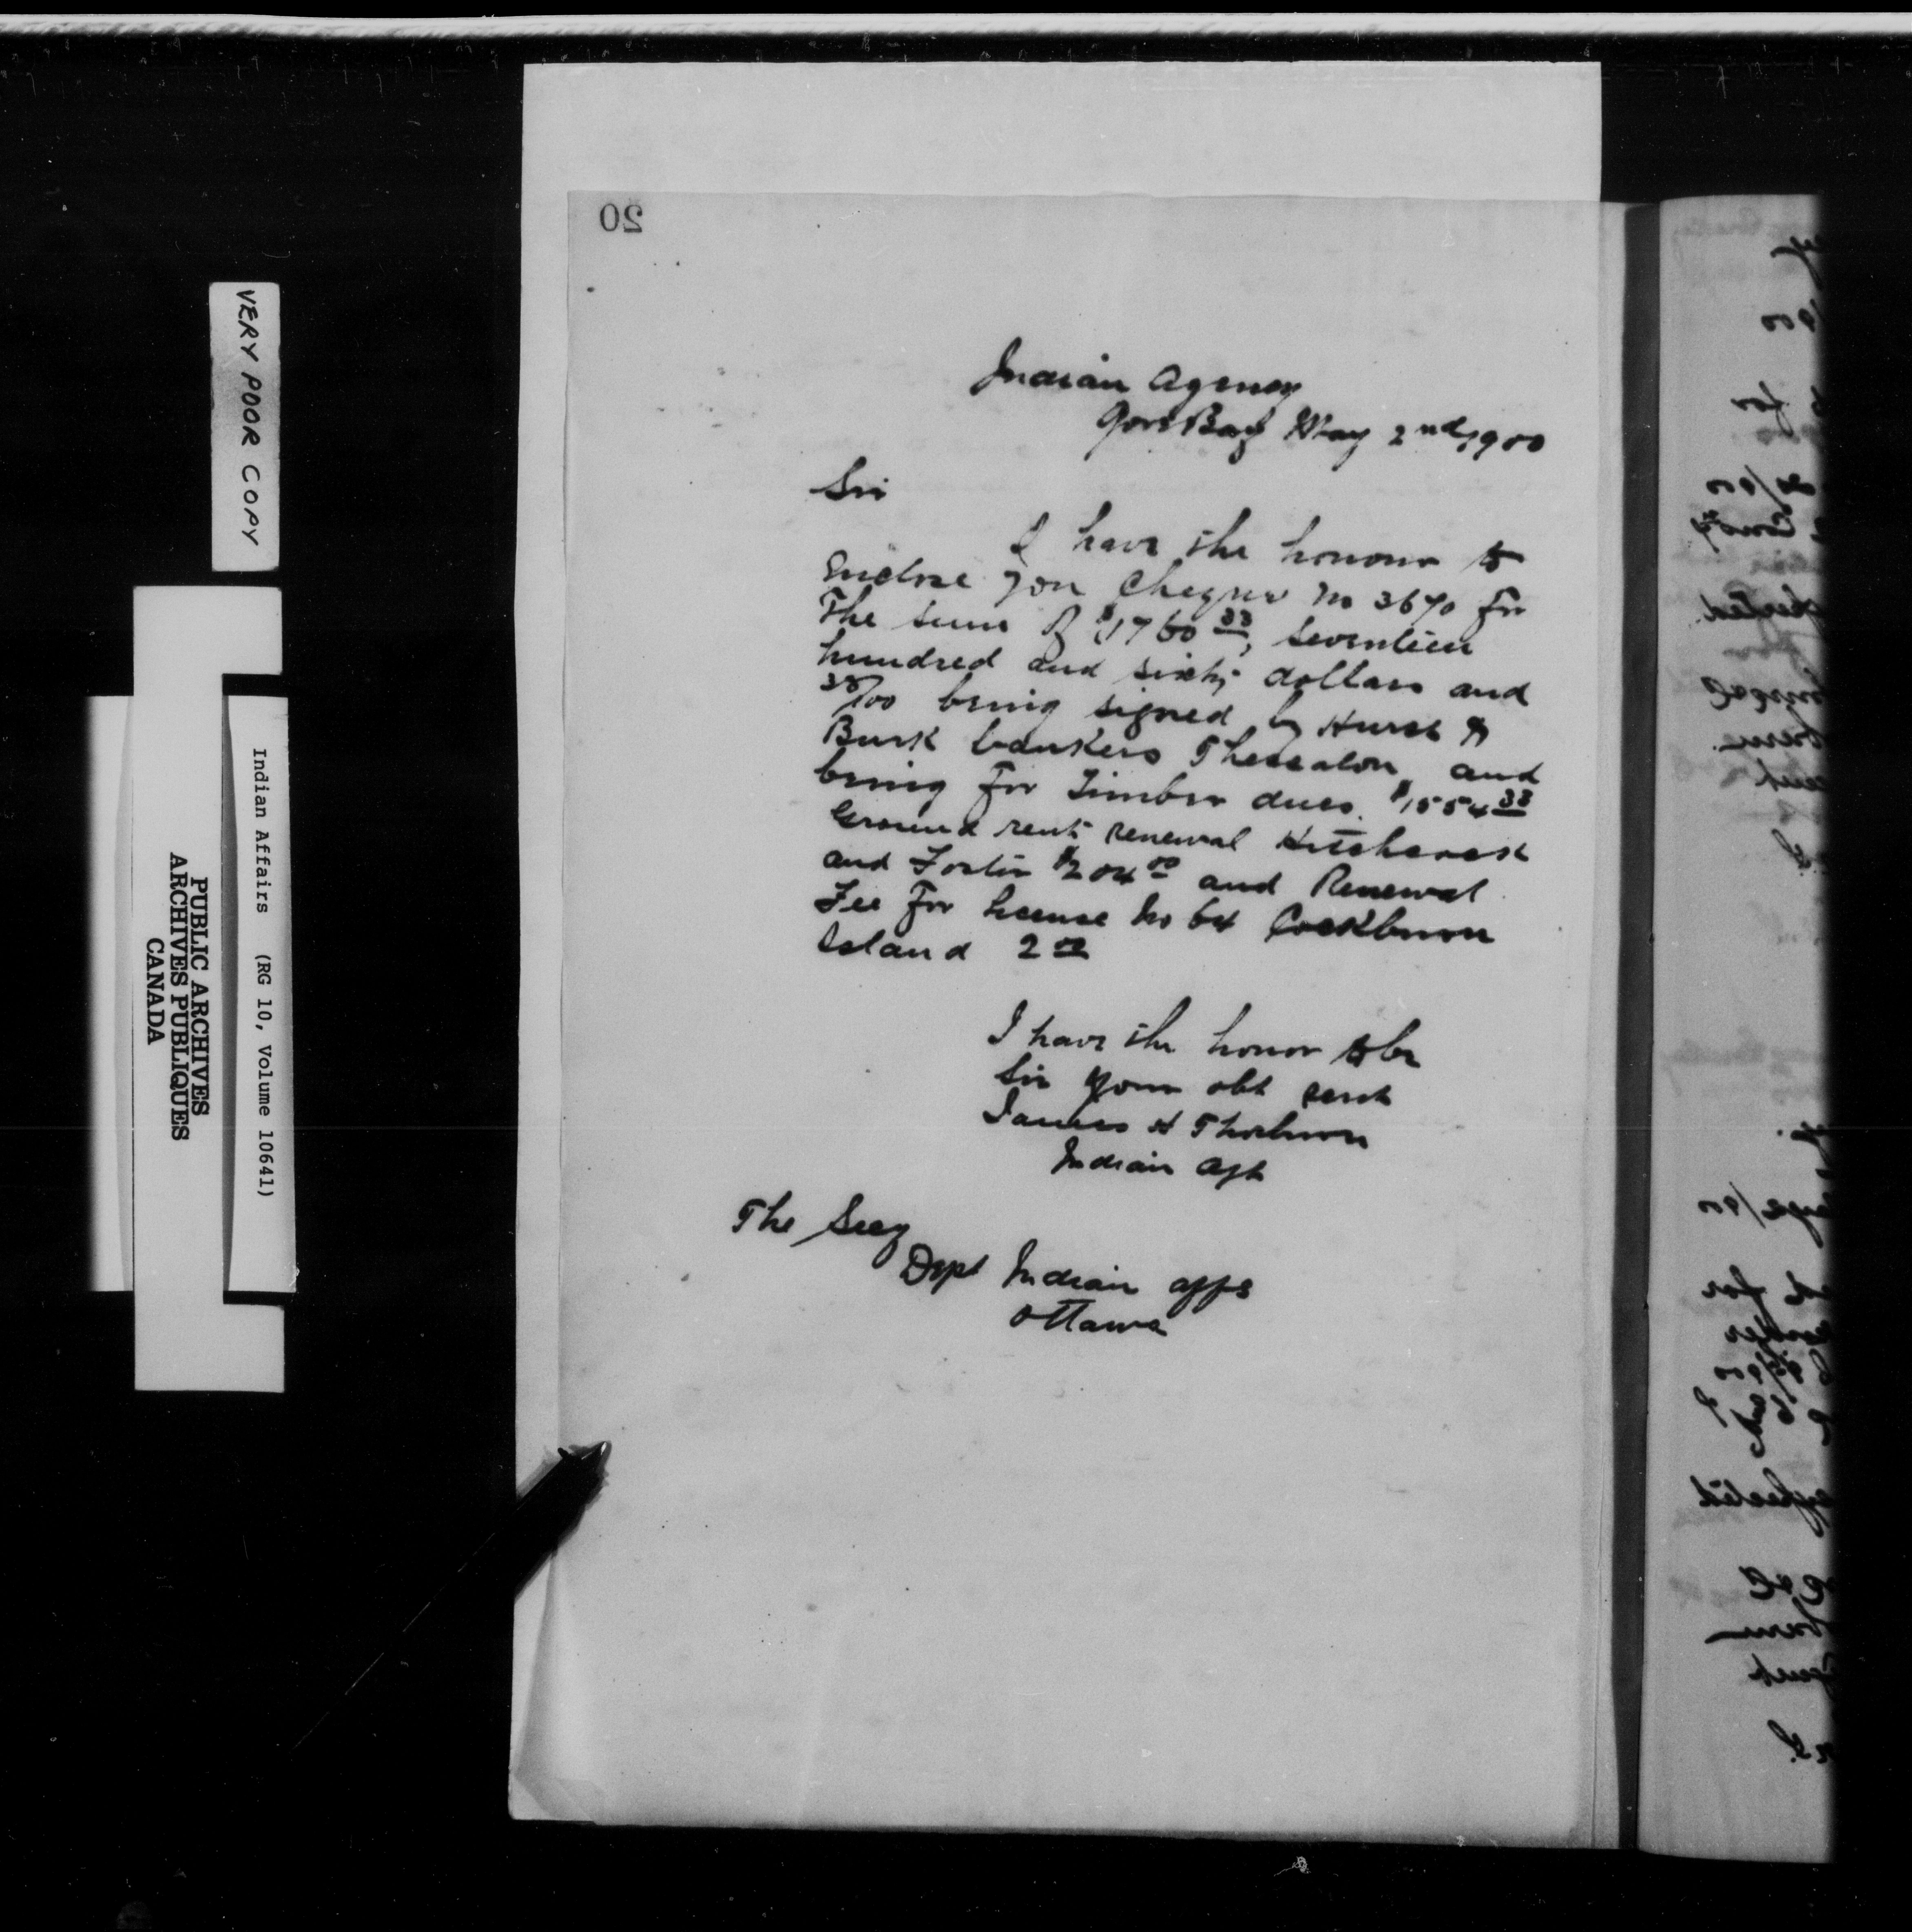 20
Indian Agency
Gore Bay May 2nd, 1900
Sir
I have the honour to
Enclose you Cheque No 3670 for
The sum of $1760 33, seventeen
hundred and sixty dollars and
33/100 being signed by Hurst &
Burk bankers Thessalon, and
being for Timber dues. $1554 33
Ground rent renewal
and Foster $204 00 and Renewal
Fee for license No 64 Cockburn
Island 2 00
I have the honor to be
Sir your obt servt
James H Thorburn
Indian Agt
The Secy
Dept Indian affs
Ottawa
VERY POOR COPY
Indian Affairs (RG 10, Volume 10641)
PUBLIC ARCHIVES
ARCHIVES PUBLIQUES
CANADA